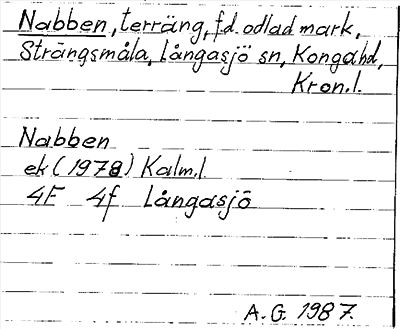 Nabben, terräng, f.d. odlad mark,
Strängsmåla, Långasjö sn, Konga hd,
Kron.l.
Nabben
ek (1978) Kalm.l
4F 4f Långasjö
A.G. 1987.